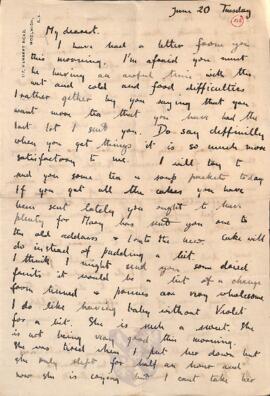 June 20 Tuesday
My dearest.
I have had a letter from you
this morning. I'm afraid you must
be having an awful time with the
wet and cold and food difficulties
I rather gather by you saying that you
want more tea that you have had the
last lot I sent you. Do say definitely
when you get things it is so much more
satisfactory to me. I will try to
send you some tea & soup packets today
If you get all the cakes you have
been sent lately you ought to have
plenty for Mary has sent you one to
the old address & to the new. Cake will
do instead of pudding a bit.
I think I might send you some dried
fruits it would be a bit of a change
from tinned prunes are very wholesome
I do like having baby without Violet
for a bit. She is such a sweet. She
is not being very good this morning.
She was tired when I put her down but
she only slept for half an hour and
now she is crying but I can't take her